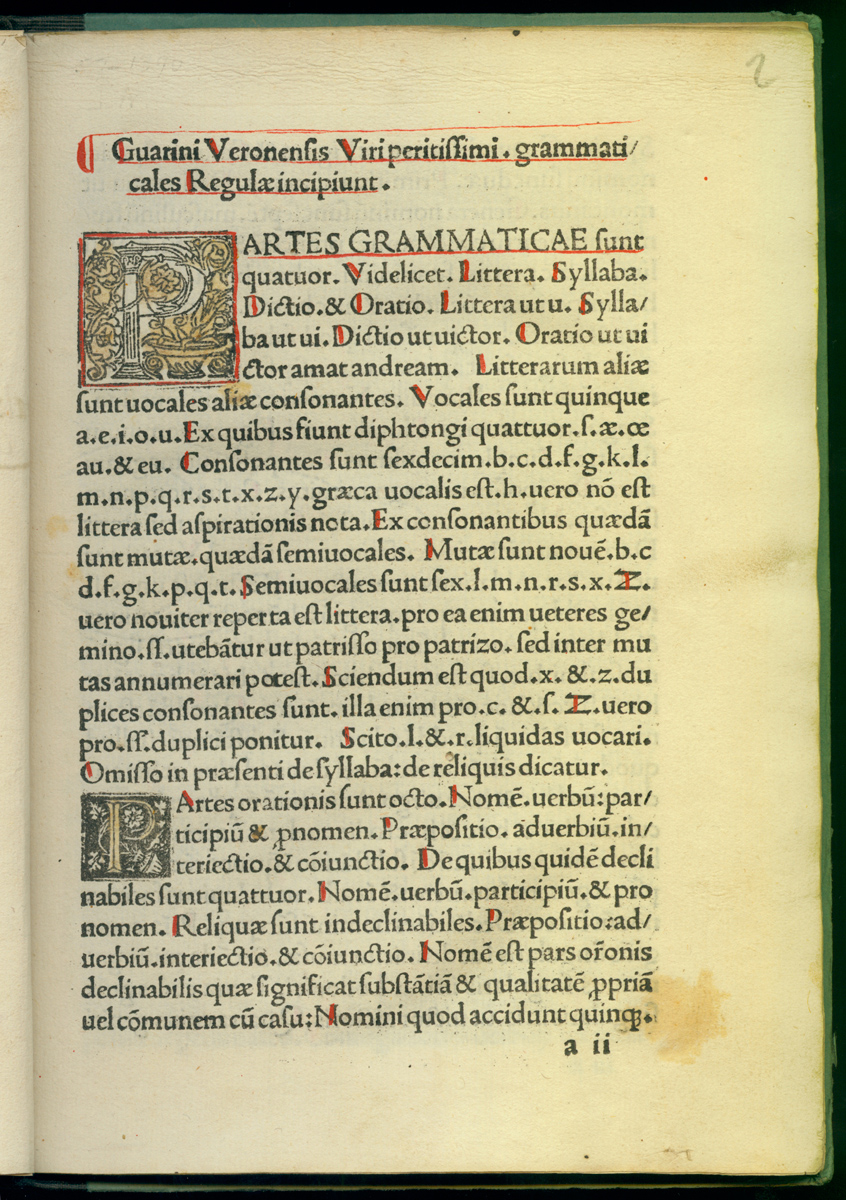 2
Guarini Veronensis Viri peritiſſimi. grammati/
cales Regulæ incipiunt.
PARTES GRAMMATICAE ſunt
quatuor. Videlicet. Littera. Syllaba.
Dictio. & Oratio. Littera ut u. Sylla/
ba ut ui. Dictio ut uictor. Oratio ut ui
ctor amat andream. Litterarum aliæ
ſunt uocales aliæ conſonantes. Vocales ſunt quinque
a.e.i.o.u. Ex quibus fiunt diphtongi quattuor. ſ. æ. œ
au. & eu. Conſonantes ſunt sexdecim. b.c.d.f.g.k.l.
m.n.p.q.r.s.t.x.z.y. græca uocalis eſt. h. uero nõ eſt
littera ſed aſpirationis nota. Ex conſonantibus quædã
ſunt mutæ. quædã ſemiuocales. Mutæ ſunt nouẽ. b.c
d.f.g.k.p.q.t. Semiuocales ſunt ſex. l.m.n.r.s.x. Z.
uero nouiter reperta eſt littera. pro ea enim ueteres ge/
mino. ſſ. utebãtur ut patriſſo pro patrizo. ſed inter mu
tas annumerari poteſt. Sciendum eſt quod. x. & . z. du
plices conſonantes ſunt. illa enim pro. c. & . ſ. Z. uero
pro. ſſ. duplici ponitur. Scito. l. & . r. liquidas uocari.
Omiſſo in præſenti de ſyllaba: de reliquis dicatur.
PArtes orationis ſunt octo. Nomẽ. uerbũ: par/
ticipiũ & ꝓnomen. Præpoſitio. aduerbiũ. in/
teriectio. & cõiunctio. De quibus quidẽ decli
nabiles ſunt quattuor. Nomẽ. uerbũ. participiũ. & pro
nomen. Reliquæ ſunt indeclinabiles. Præpoſitio: ad/
uerbiũ. interiectio. & cõiunctio. Nomẽ eſt pars or̃onis
declinabilis quæ ſignificat ſubſtãtiã & qualitatẽ ꝓpriã
uel cõmunem cũ caſu: Nomini quod accidunt quinqꝫ.
a ii